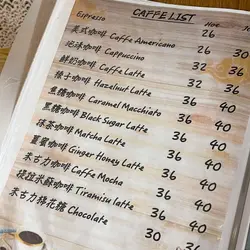 CAFFE LIST
Espresso Hot
美式咖啡 Caffe Americano 26 30
泡沫咖啡 Cappuccino 32 36
鮮奶咖啡 Caffe Latte 32 36
榛子咖啡 Hazelnut Latte 36 40
焦糖咖啡 Caramel Macchiato 36 40
黑糖咖啡 Black Sugar Latte 36 40
抹茶咖啡 Matcha Latte 36 40
薑蜜咖啡 Ginger Honey Latte 36 40
朱古力咖啡 Caffe Mocha 36 40
提拉米蘇咖啡 Tiramisu Latte 36 40
朱古力棉花糖 Chocolate 30